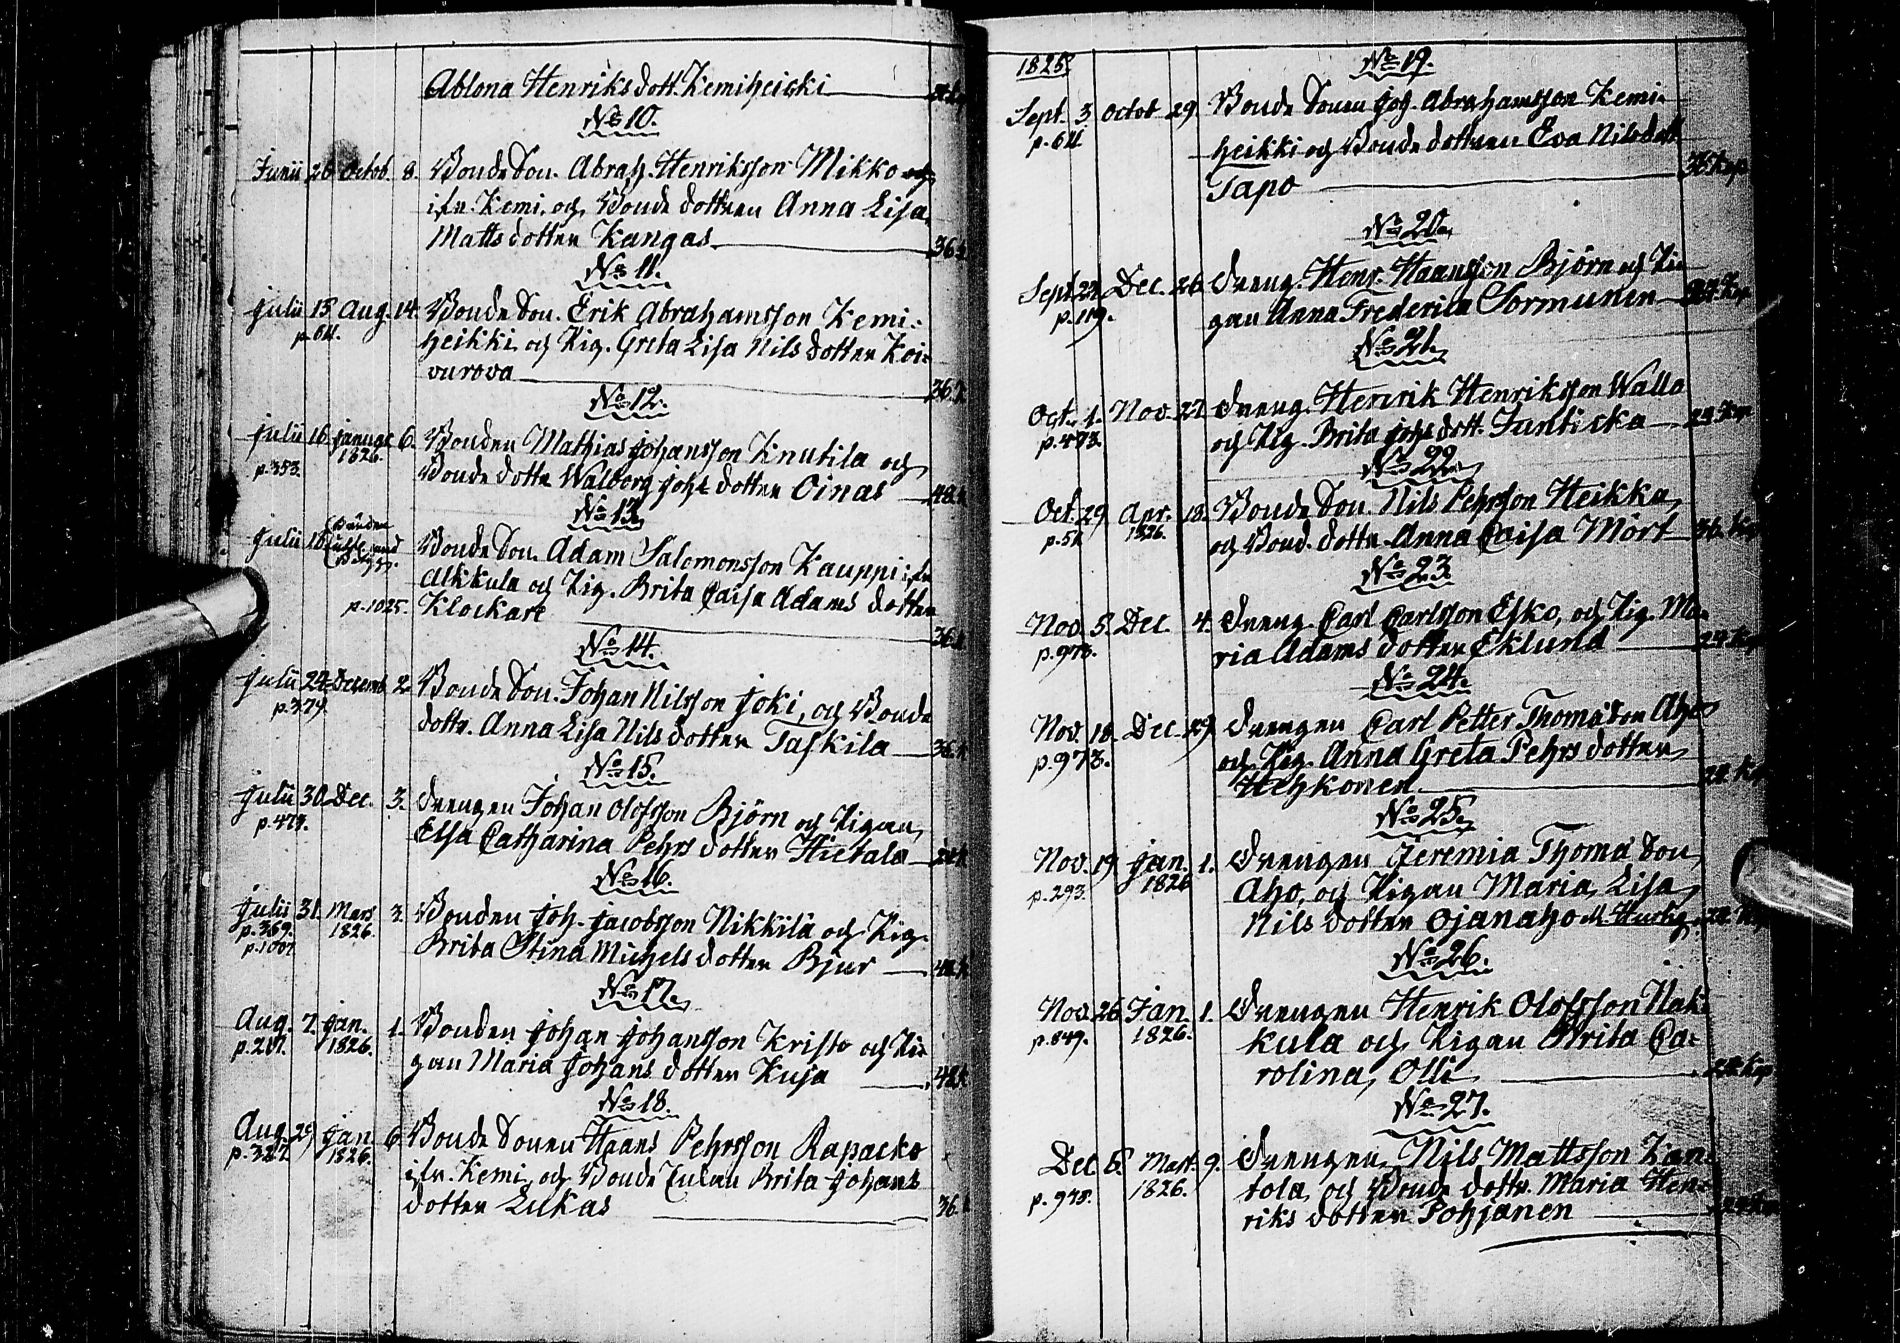 Ablona Henriksdott. Kemiheicki
No 10.
Junii 26 Octob. 8. Bonde Son. Abrah. Henriksson Mikko
ifr. Kemi, och Bonde dottren Anna Lisa
Matts dotter Kangas 36
No 11.
Julii 15 Aug. 14. Bonde Son. Erik Abrahamsson Kemi-
p. 611. heikki och Pig. Greta Lisa Nils dotter Koi-
vurova 36.
No 12.
Julii 16 Januar. 6. Bonden Mathias Johansson Knutila och
1826.
p. 353. Bonde dottr Walborg Joh: dotter Oinas 48.
No 13.
Julii Bonde Son. Adam Salomonsson Kauppi ifr.
Alkkula och Pig. Brita Caisa Adams dotter
p. 1025. Klockare 36
No 14.
Julii Decemb. 2. Bonde Son. Johan Nilsson Joki, och Bonde
p. 379. dottr. Anna Lisa Nils dotter Taskila 36
No 15.
Julii 30 Dec. 3. Drengen Johan Olofsson Björn och Pigan
p. 479. Elsa Catharina Pehrs dotter Hietala
No 16.
Julii 31. Mars 3. Bonden Joh. Jacobsson Nikkilä och Pig.
p. 369. 1826.
p. 1007. Brita Stina Michels dotter Bjur
No 17.
Aug. 7. Jan. 1. Bonden Johan Johansson Kristo och Pi-
p. 217. 1826. gan Maria Johans dotter Kuja 48
No 18.
Aug. 29 Jan. 6. Bonde Sonen Haans Pehrsson Rapacko
p. 327. 1826. ifr. Kemi, och Bonde Enkan Brita Johans
dotter Lukas 36.
1825.
No 19.
Sept. 3 Octob 29. Bonde Sonen Joh. Abrahamsson Kemi-
p. 611 heikki och Bonde dottren Eva Nilsdott
Tapo 36 Kop
No 20.
Sept. 22 Dec. 26. Dreng. Henr. Haansson Björn och Pi-
p. 119. gan Anna Frederica Sormunen
No 21.
Oct. 1. Nov. 27. Dreng. Henrik Henriksson Walla
p. 473. och Pig. Brita Johs dott. Junticka 24 Kop
No 22.
Oct. 29 Apr. 13. Bonde Son Nils Pehrsson Heikka,
1826.
p. 51. och Bond. dottr. Anna Caisa Mört 36. Kop
No 23
Nov. 5. Dec 4. Dreng. Carl Carlsson Esko, och Pig. Ma-
p. 973. ria Adams dotter Eklund 24 Kop
No 24.
Nov. 18. Dec. 29. Drengen Carl Petter Thomä Son Aho
p. 973. och Pig. Anna Greta Pehrs dotter
Hehkonen 24 Kop
No 25.
Nov. 19 Jan. 1. Drengen Jeremia Thomä Son
p. 293. 1826 Aho, och Pigan Maria Lisa
Nils dotter Ojanaho
No 26.
Nov. 26 Jan. 1. Drengen Henrik Olofsson Nak-
p. 849. 1826. kula och Pigan Brita Ca-
rolina Olli 24 Kop
No 27.
Dec. 5. Mart. 9. Drengen Nils Mattsson Kan-
p. 975. 1826. tola, och Bonde dottr. Maria Hen-
riks dotter Pohjanen